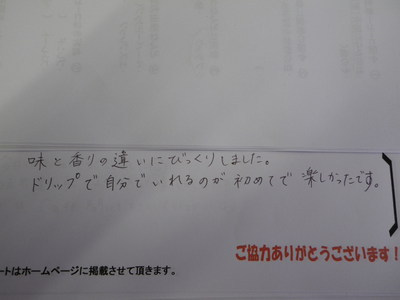 味と香りの違いにびっくりしました。
ドリップで自分でいれるのが初めてで楽しかったです。
ご協力ありがとうございます!
ートはホームページに掲載させて頂きます。